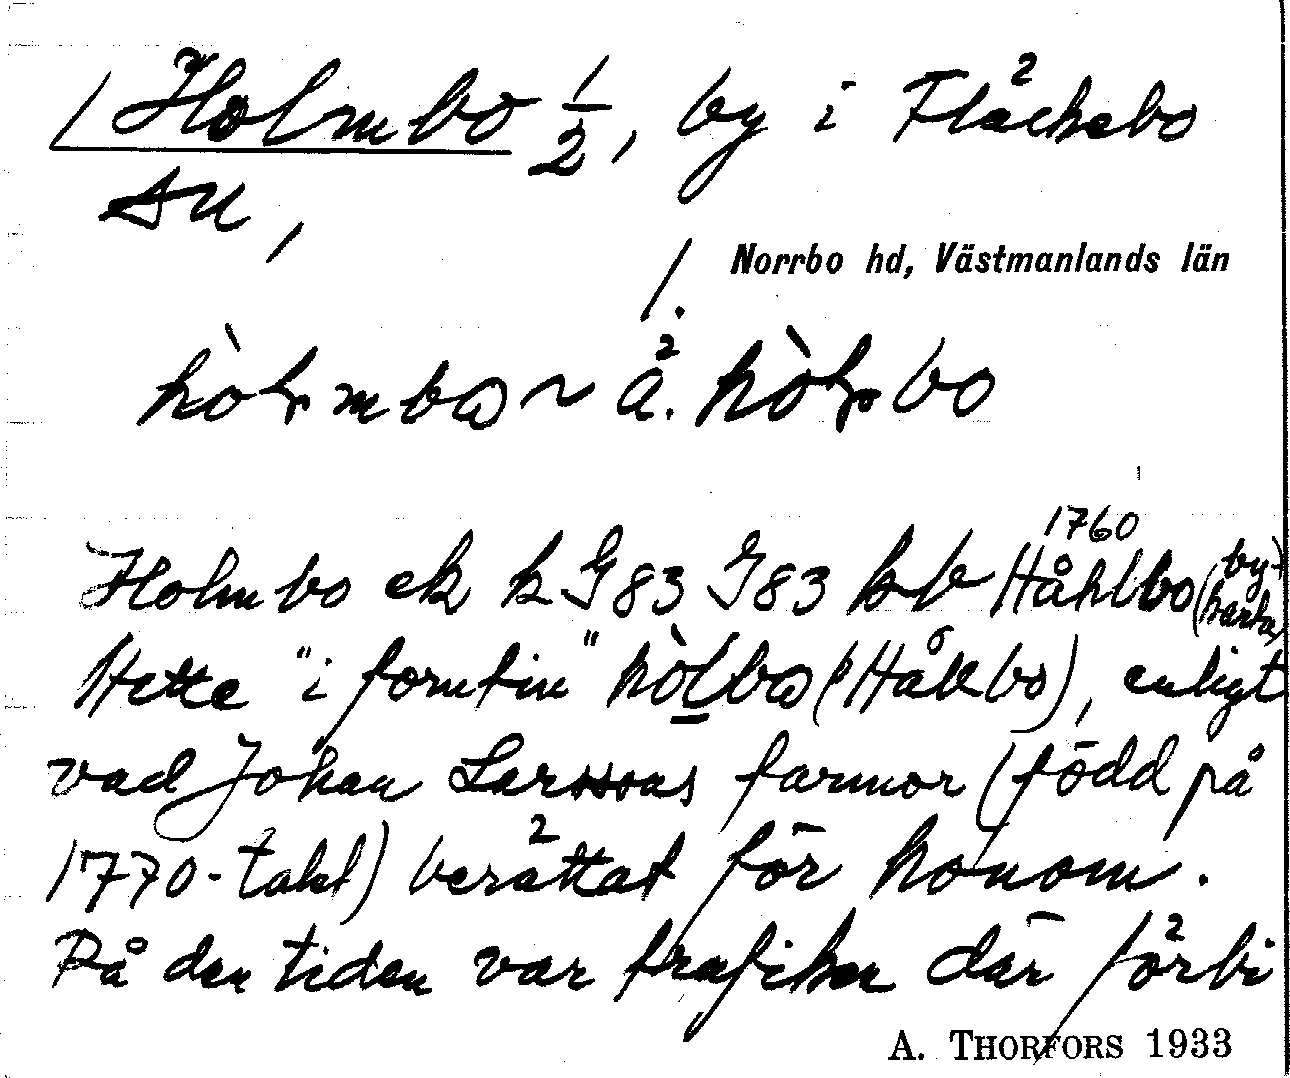 Holmbo 1/2, by i Fläckebo
sn,
Norrbo hd, Västmanlands län
1.
hòlmbo ~ ä. hòlbo
1760
Holmbo ek k G83 J83 kb Håhlbo (by-
karta)
Hette "i forntin" hòlbo (Hålbo), enligt
vad Johan Larssons farmor (född på
1770-talet) berättat för honom.
På den tiden var trafiken där förbi
A. THORFORS 1933